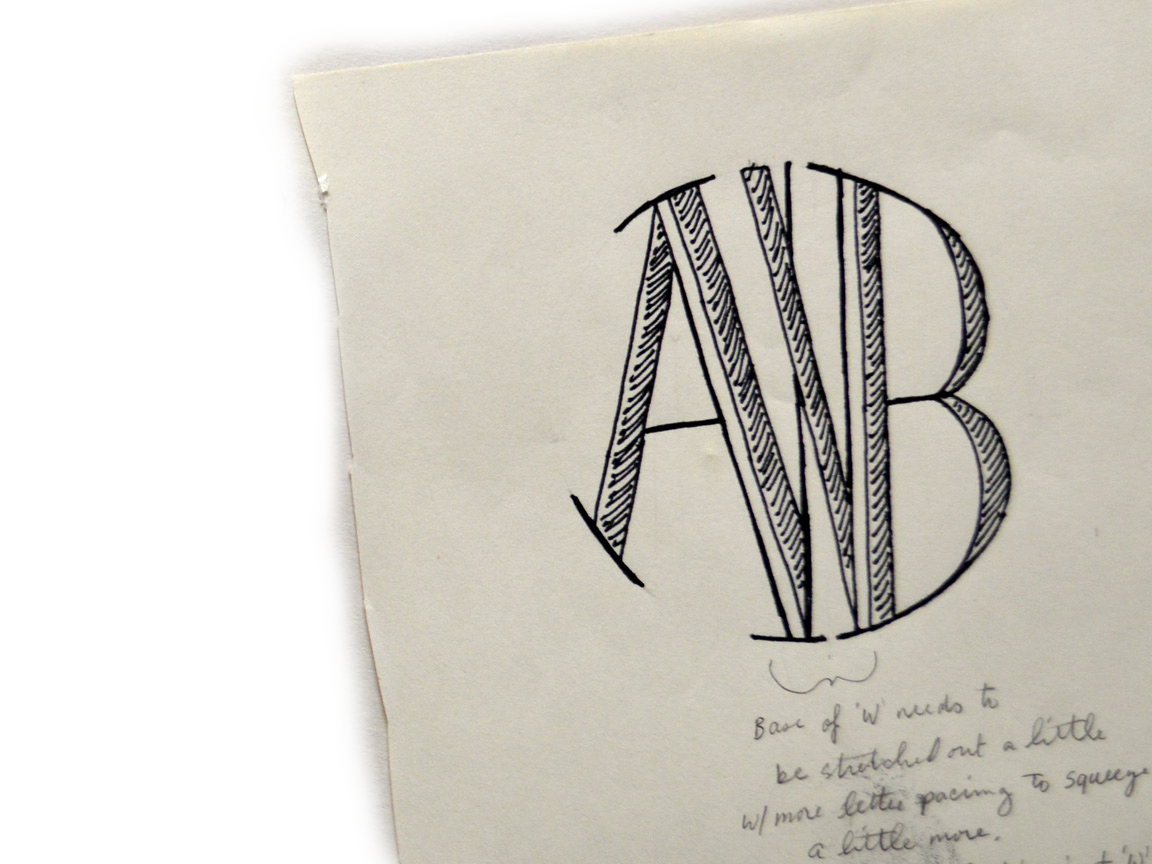 AWB
Base of 'W' needs to
be stretched out a little
w/more letter pacing to squeeze
a little more.
'W'